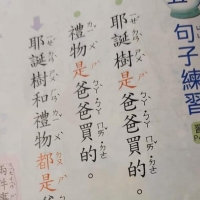 句子練習
耶誕樹是爸爸買的。
禮物是爸爸買的。
耶誕樹和禮物都是爸